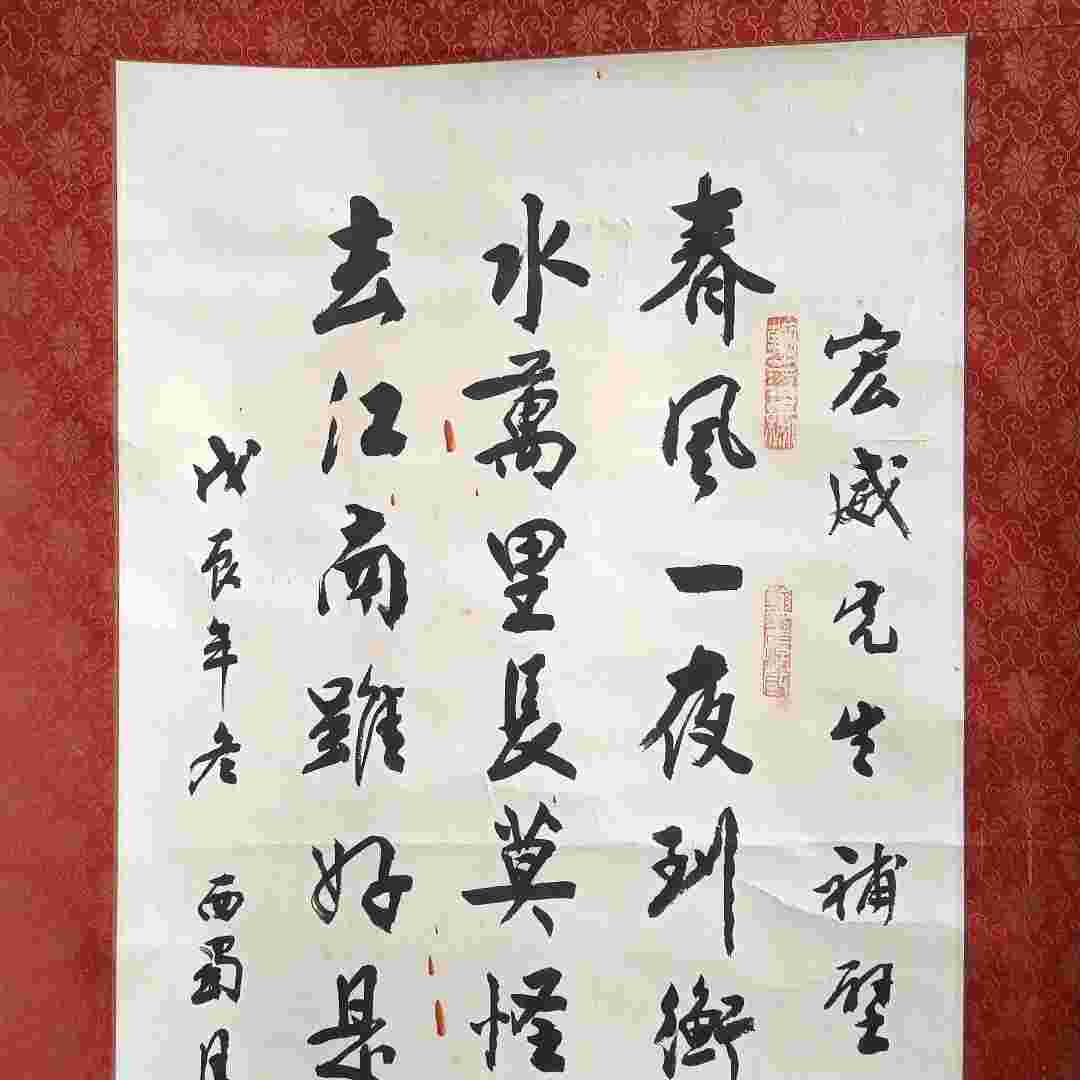 宏威先生補壁
春風一夜到衡
水萬里長莫怪
去江南雖好是
戊辰年冬 西蜀